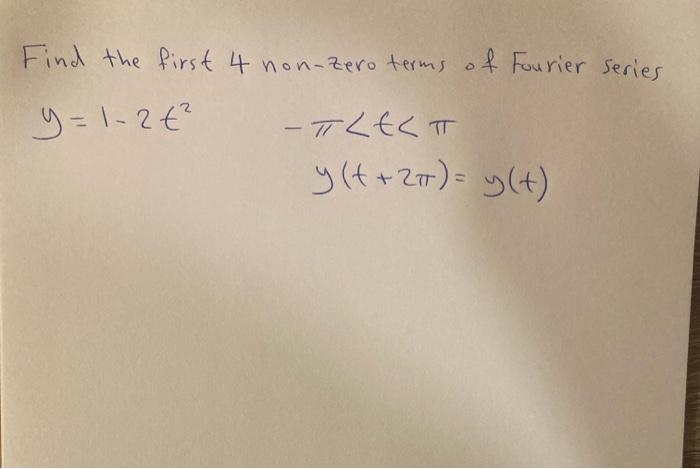 Find the first 4 non-zero terms of Fourier Series
y = 1 - 2t² -π < t < π
y(t + 2π) = y(t)